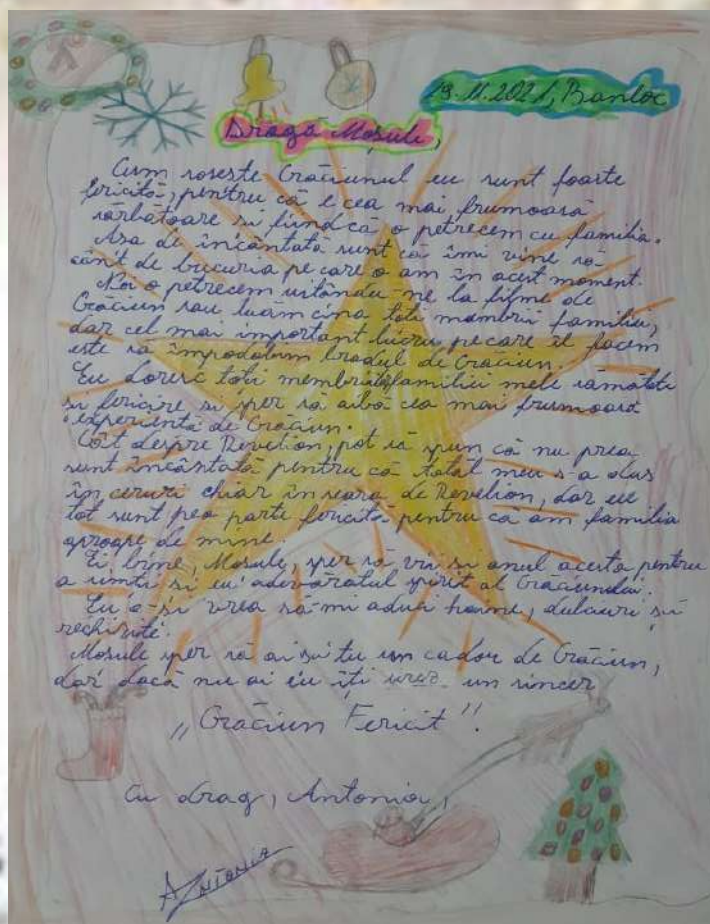 19.11.2021, Banloc
Dragă Moșule,
Cum sosește Crăciunul eu sunt foarte
fericită, pentru că e cea mai frumoasă
sărbătoare si fiind că o petrecem cu familia.
Asa de încântată sunt că îmi vine să
cânt de bucuria pe care o am în acest moment.
Noi o petrecem uitându-ne la filme de
Crăciun sau luăm cina toti membrii familiei,
dar cel mai important lucru pe care îl facem
este să împodobim bradul de Crăciun.
Eu doresc toti membrii familiei mele sămătate
si fericire si sper să aibă cea mai frumoasă
experientă de Crăciun.
Cât despre Revelion, pot să spun că nu prea
sunt încântată pentru că tatăl meu s-a dus
în ceruri chiar în seara de Revelion, dar eu
tot sunt pe o parte fericită pentru că am familia
aproape de mine.
Ei bine, Mosule, sper să vii si anul acesta pentru
a simti si eu adevăratul spirit al Crăciunului.
Eu a-si vrea să-mi aduci haine, dulciuri si
rechizite.
Mosule sper să ai si tu un cadou de Crăciun,
dar dacă nu ai eu îti urez un sincer
,,Crăciun Fericit"!
Cu drag, Antonia,
Antonia